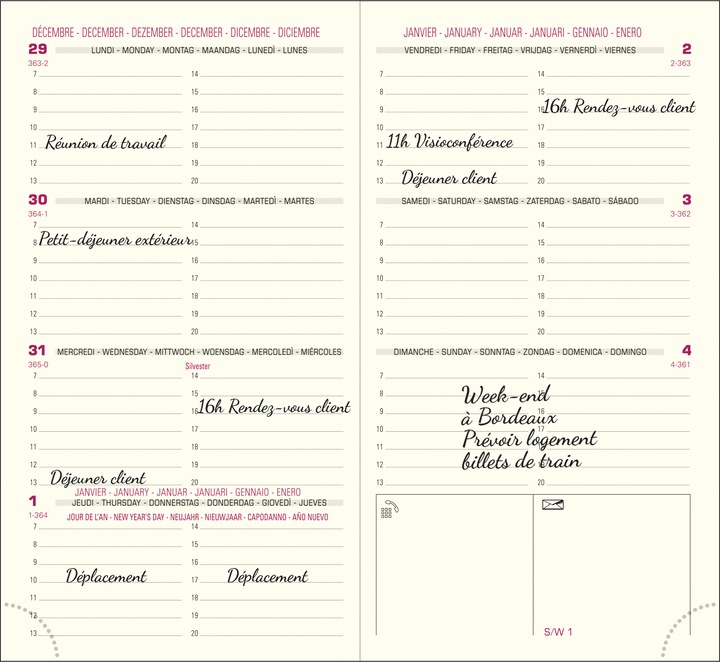 DÉCEMBRE - DECEMBER - DEZEMBER - DECEMBER - DICEMBRE - DICIEMBRE
29 LUNDI - MONDAY - MONTAG - MAANDAG - LUNEDÌ - LUNES
363-2
7 14
8 15
9 16
10 17
11 Réunion de travail 18
12 19
13 20
30 MARDI - TUESDAY - DIENSTAG - DINSDAG - MARTEDÌ - MARTES
364-1
7 14
8 Petit-déjeuner extérieur 15
9 16
10 17
11 18
12 19
13 20
31 MERCREDI - WEDNESDAY - MITTWOCH - WOENSDAG - MERCOLEDÌ - MIÉRCOLES
365-0 Silvester
7 14
8 15
9 16 16h Rendez-vous client
10 17
11 18
12 19
13 Déjeuner client 20
JANVIER - JANUARY - JANUAR - JANUARI - GENNAIO - ENERO
1 JEUDI - THURSDAY - DONNERSTAG - DONDERDAG - GIOVEDÌ - JUEVES
1-364 JOUR DE L'AN - NEW YEAR'S DAY - NEUJAHR - NIEUWJAAR - CAPODANNO - AÑO NUEVO
7 14
8 15
9 16
10 Déplacement 17 Déplacement
11 18
12 19
13 20
JANVIER - JANUARY - JANUAR - JANUARI - GENNAIO - ENERO
VENDREDI - FRIDAY - FREITAG - VRIJDAG - VERNERDÌ - VIERNES 2
2-363
7 14
8 15
9 16 16h Rendez-vous client
10 17
11 11h Visioconférence 18
12 19
13 Déjeuner client 20
SAMEDI - SATURDAY - SAMSTAG - ZATERDAG - SABATO - SÁBADO 3
3-362
7 14
8 15
9 16
10 17
11 18
12 19
13 20
DIMANCHE - SUNDAY - SONNTAG - ZONDAG - DOMENICA - DOMINGO 4
4-361
7 14
8 Week-end 15
9 à Bordeaux 16
10 Prévoir logement 17
11 billets de train 18
12 19
13 20
S/W 1